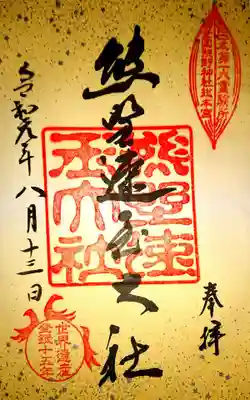 奉拝
熊野速玉大社
令和元年八月十三日
熊野速
玉大社
世界遺産
登録十五年